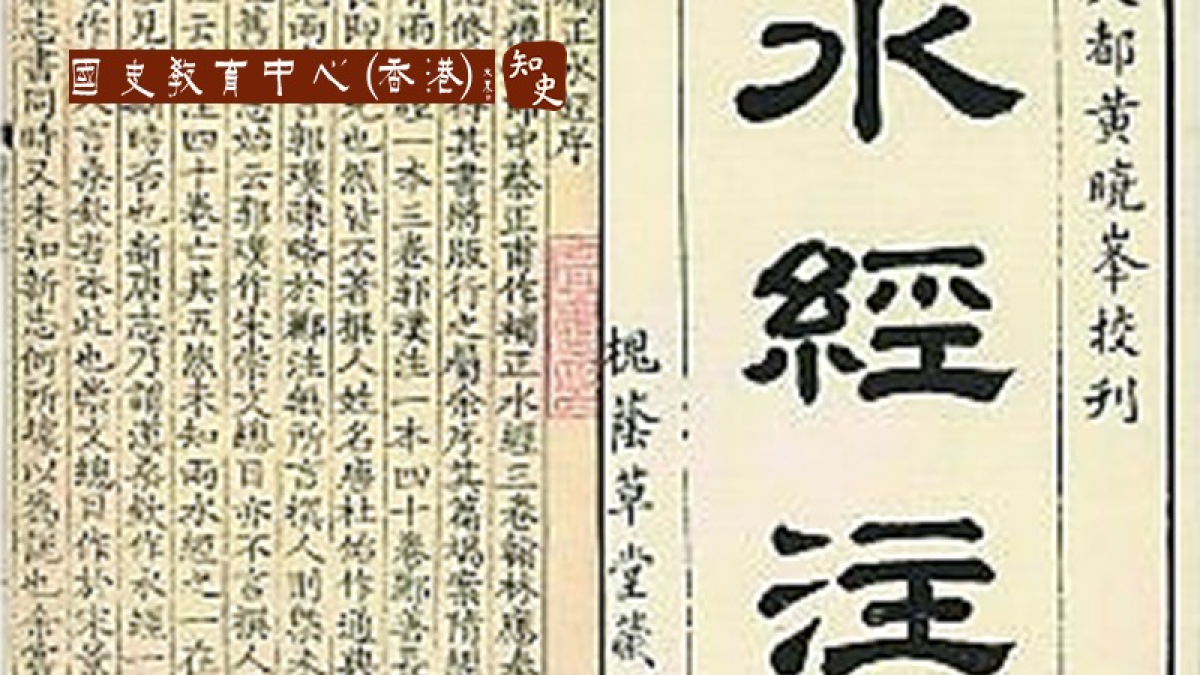 國史教育中心(香港)
知史
都黃曉峯挍刊
水經注
槐蔭草堂藏
正水經序
郎中蔡正甫作補正水經三卷翰林應奉
其書將版行之屬余序其篇端案隋經
經一本三卷郭璞注一本四十卷酈善長
也然皆不著撰人姓名唐杜佑作通典
郭璞疎略於酈注無所言撰人則槩未
志始云郭璞作宋崇文總目亦不言撰人
云注四十卷亡其五然未知兩水經之一在
見時否也新唐志乃謂漢桑欽作水經一
作人言桑欽者本此也崇文總目作於宋景
志書同時又未知新志何所據以為說也余嘗